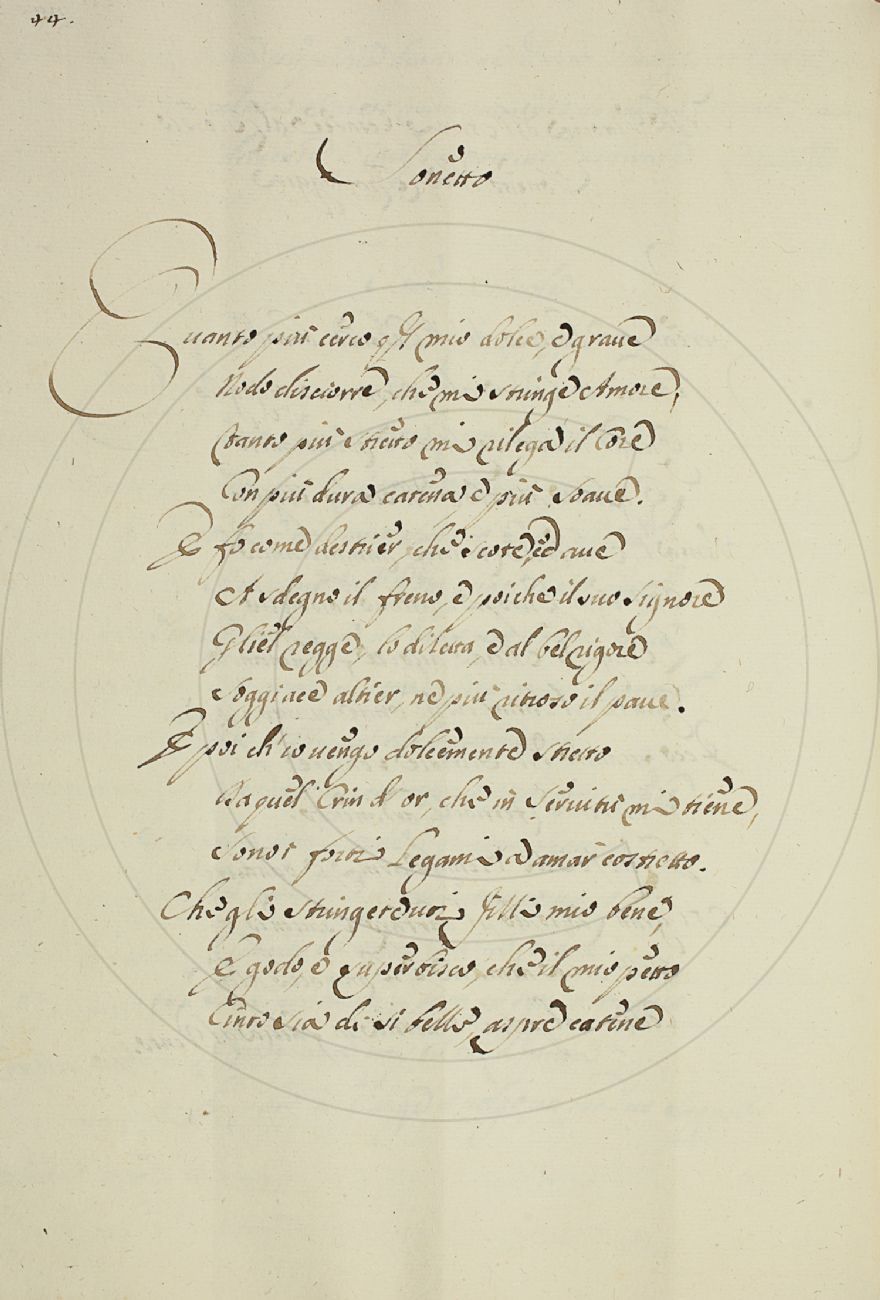 44.
Sonetto
Quanto più cerco qs͞t mio dolce, e graue
Nodo disciorre, che mi stringe Amore,
Tanto più stretto mi rilega il Core
Con più dura catena, e più soaue.
E fò come destrier, che scote, ed aue
A sdegno il freno, e poiche il suo signore
Gliel regge, lo diletta, e al bel rigore
Soggiace altier, ne più ritroso il paue.
E poi ch'io uengo dolcemente stretto
Da quel Crin d'or, che in Seruitù mi tiene,
Sono i forti Legami ad amar costretto.
Che gli stringete uoi, Filli mio bene,
E godo, e superbisco, che il mio petto
Cinto sia di si belle, aspre catene